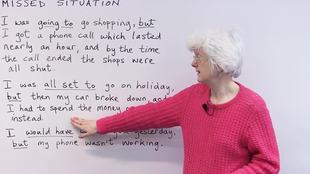 MISSED SITUATION
I was going to go shopping, but
I got a phone call which lasted
nearly an hour, and by the time
the call ended the shops were
all shut.
I was all set to go on holiday,
but then my car broke down and
I had to spend the money
instead.
I would have yesterday,
but my phone wasn't working.